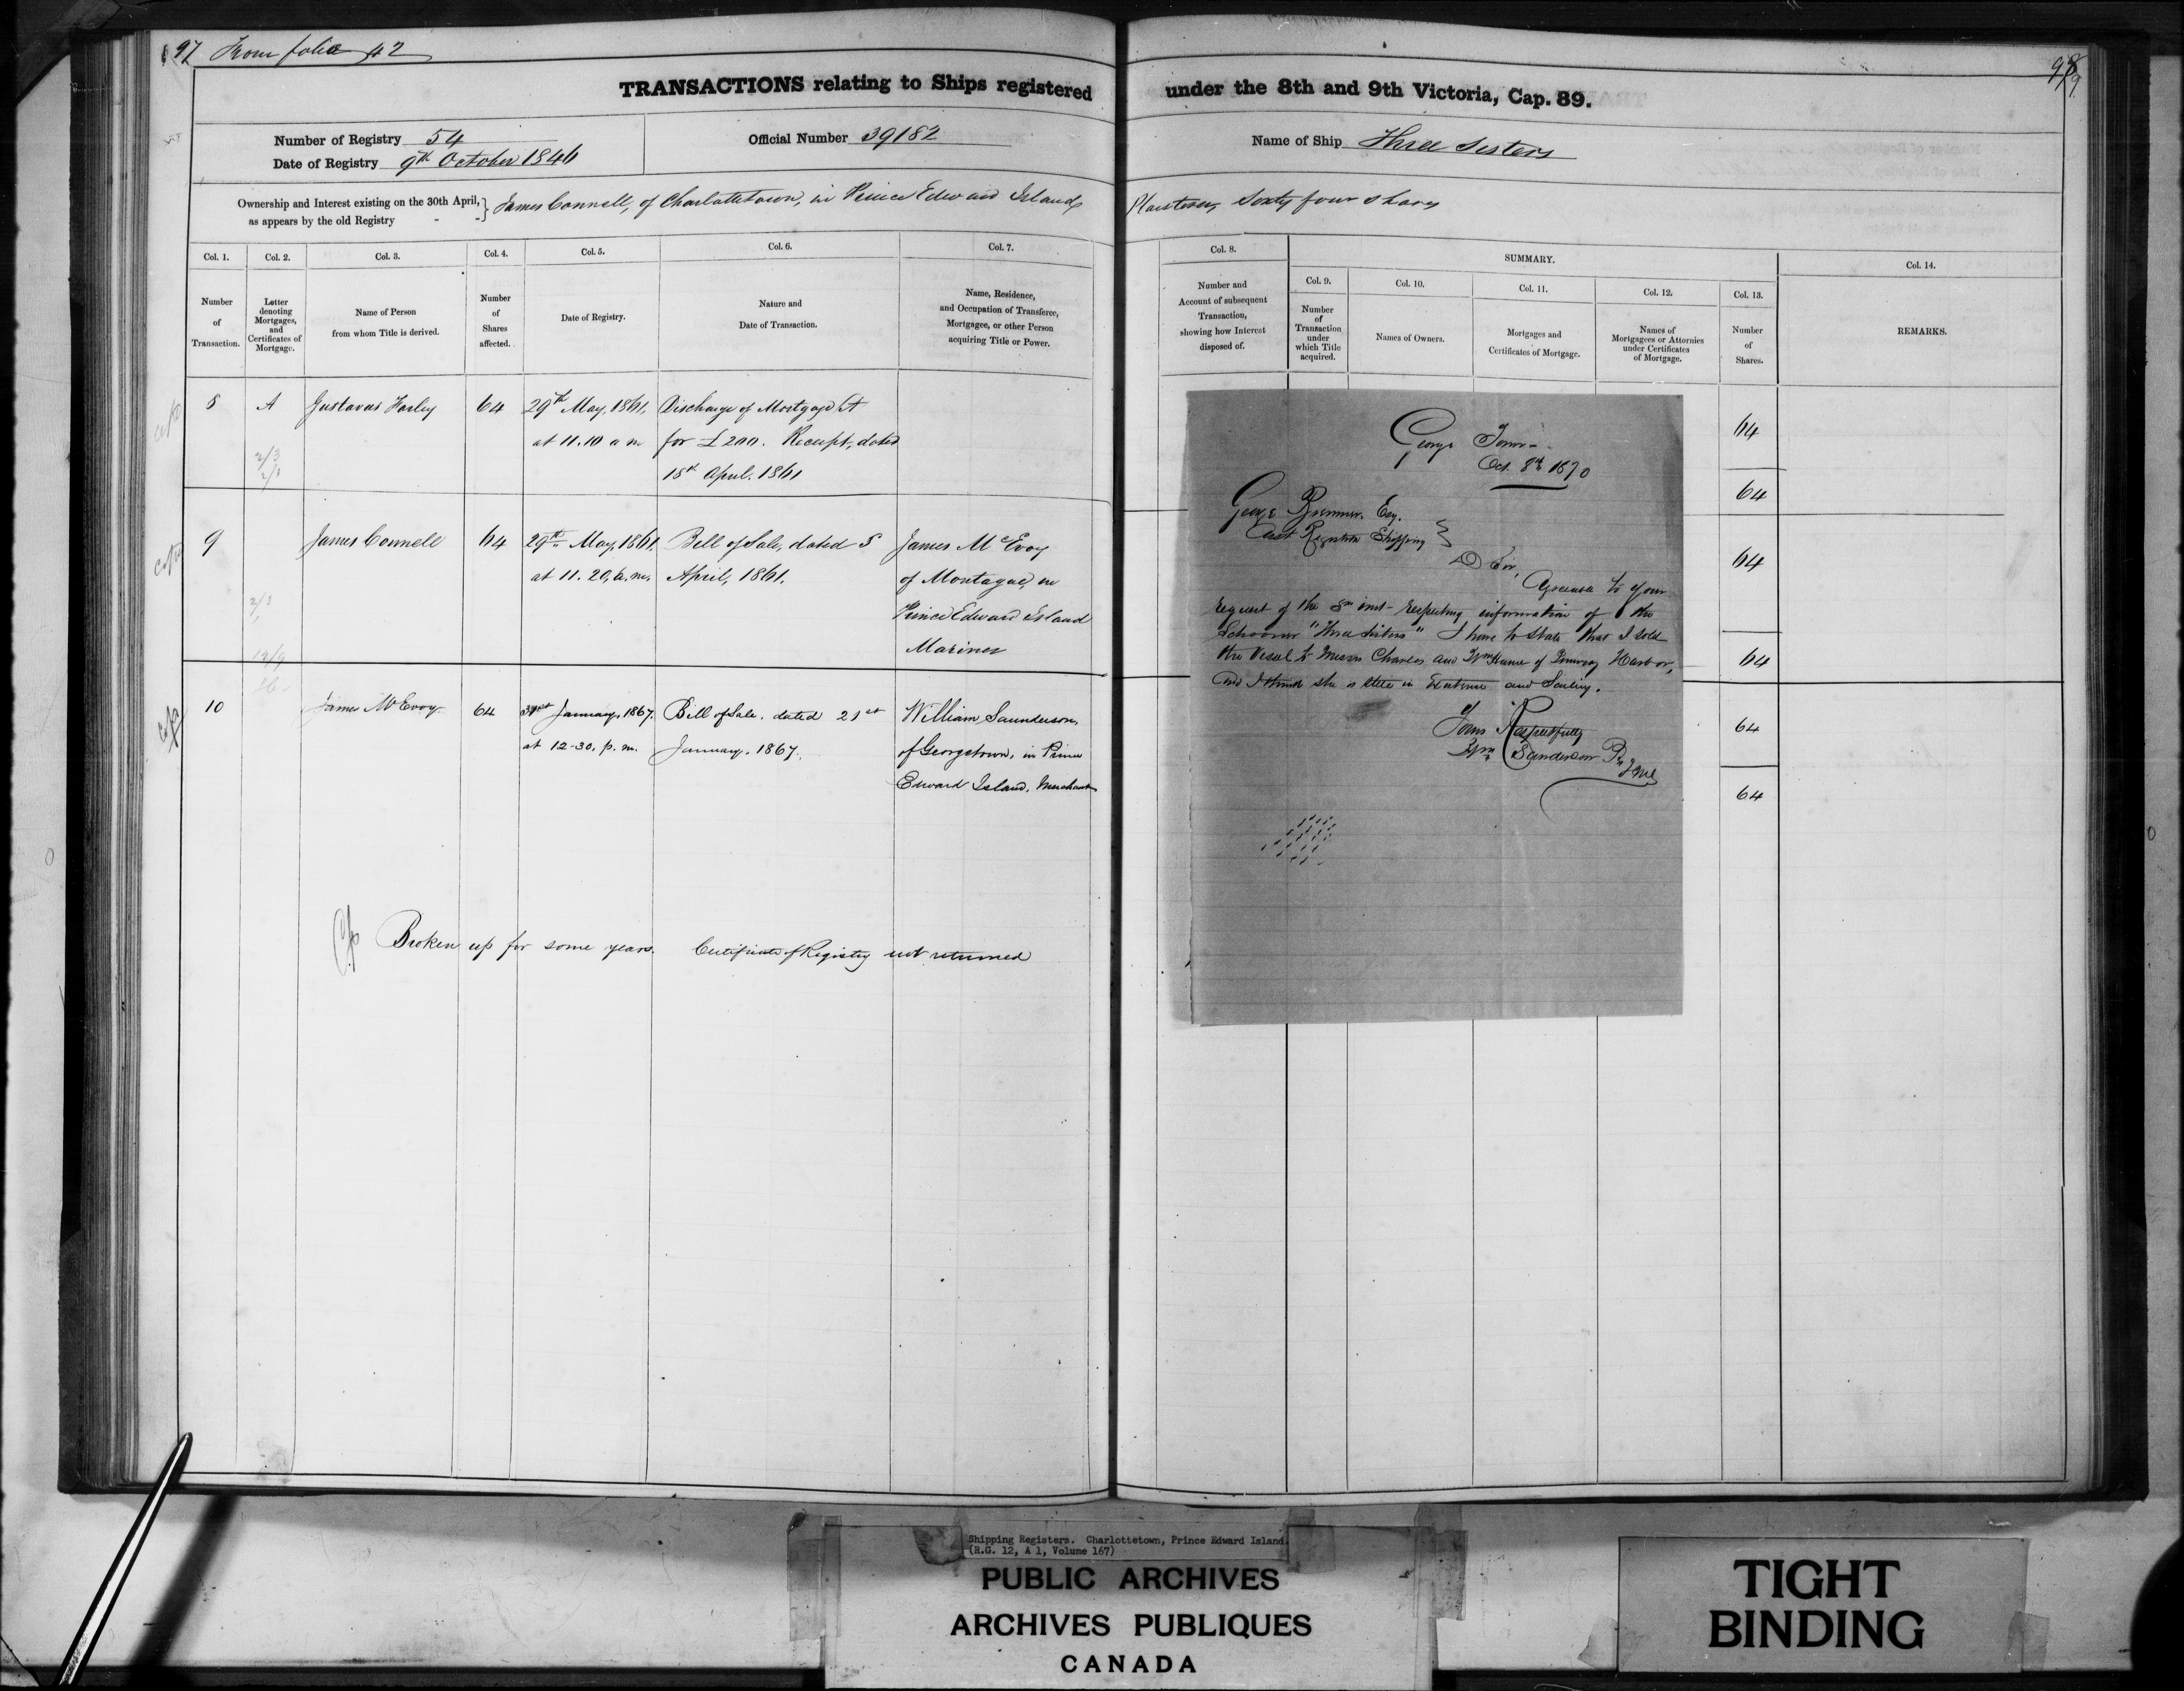 97 From folio 42
98
TRANSACTIONS relating to Ships registered under the 8th and 9th Victoria, Cap. 89.
Number of Registry 54
Date of Registry 9th October 1846
Official Number 39182
Name of Ship Three Sisters
Ownership and Interest existing on the 30th April, as appears by the old Registry - - } James Connell, of Charlottetown, in Prince Edward Island, Plasterer, Sixty four Shares
Col. 1.
Number
of
Transaction.
Col. 2.
Letter
denoting
Mortgages,
and
Certificates of
Mortgage.
Col. 3.
Name of Person
from whom Title is derived.
Col. 4.
Number
of
Shares
affected.
Col. 5.
Date of Registry.
Col. 6.
Nature and
Date of Transaction.
Col. 7.
Name, Residence,
and Occupation of Transferee,
Mortgagee, or other Person
acquiring Title or Power.
Col. 8.
Number and
Account of subsequent
Transaction,
showing how Interest
disposed of.
SUMMARY.
Col. 9.
Number
of
Transaction
under
which Title
acquired.
Col. 10.
Names of Owners.
Col. 11.
Mortgages and
Certificates of Mortgage.
Col. 12.
Names of
Mortgagees or Attornies
under Certificates
of Mortgage.
Col. 13.
Number
of
Shares.
Col. 14.
REMARKS.
8 A Gustavus 64 29th May, 1861, Discharge of Mortgage A
at 11.10 a m for £200. Receipt, dated
18th April. 1861
2/3
9 James Connell 64 29th May, 1861, Bill of Sale, dated 5 James McEvoy
at 11.20, a.m. April, 1861. of Montague, in
Prince Edward Island
Mariner
12/9
10 James McEvoy 64 31st January, 1867. Bill of Sale. dated 21st William Saunderson,
at 12-30. p. m. January. 1867. of Georgetown, in Prince
Edward Island, Merchant
Broken up for some years. Certificate of Registry not returned
64
64
64
64
64
64
George Town -
Oct. 8th 1870
George Esq.
Shipping }
D Sir,
to your
request of the inst- respecting information of the
Schooner "Three Sisters" I have to state that I sold
the Vessel to Messrs Charles and Wm of Harbor,
and I think she is still in Existence and Sailing.
Yours Respectfully
Wm Sanderson
Shipping Registers. Charlottetown, Prince Edward Island.
(R.G. 12, A 1, Volume 167)
PUBLIC ARCHIVES
ARCHIVES PUBLIQUES
CANADA
TIGHT
BINDING